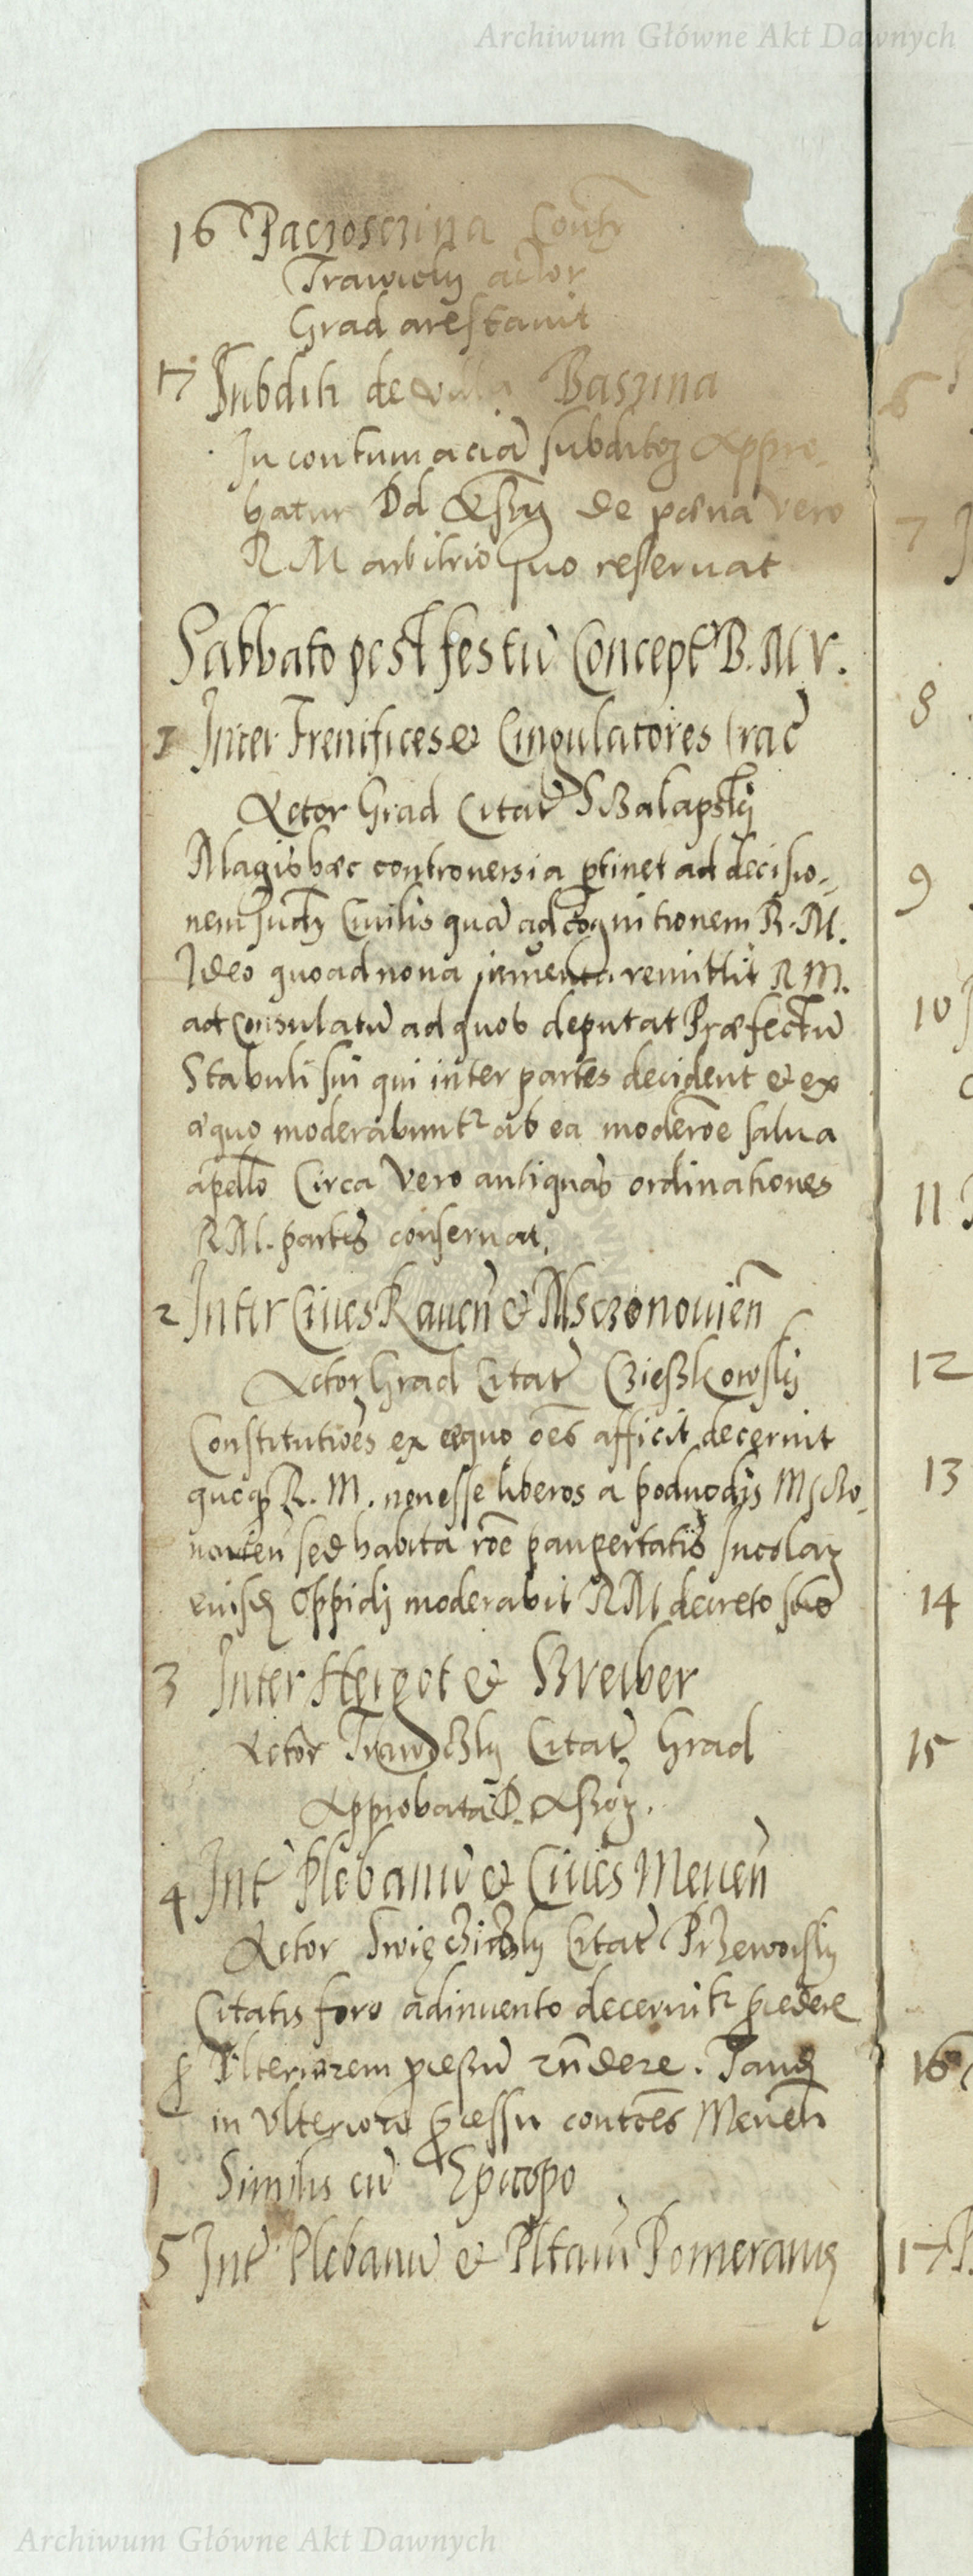 Archiwum Główne Akt Dawnych
16 Paczosczina Contr
Trawicky actor
Grad arestauit
17 Subditi de villa Baszina
In contumaciā subditoꝝ Appro-
batur Dd Assꝝ de pœna vero
R M arbitrio suo reseruat
Sabbato post festū Concept B. M V.
1 Inter Frenifices & Cingulatores Crac̄
Actor Grad Citat
Magis hæc controuersia ꝑtinet ad decisio-
nem Judy Ciuilis quā ad cognitionem R. M.
Ideo quoad noua remittit R M.
ad Consulatū ad quos deputat Præfectū
Stabuli sui qui inter partes decident & ex
æquo moderabuntr ab ea moderōe salua
apello Circa Vero antiquas ordinationes
R M. partes conseruat.
2 Inter Ciues Raueñ & Msczonouień
Actor Grad Citat Czieszkowsky
Constitutiōes ex æquo oēs afficit decernit
quoqꝫ R. M. non esse liberos a poduodys Msczo-
nouień sed habita rōe paupertatis Incolaꝝ
eiusdꝫ Oppidi moderabit R M decreto suo
3 Inter Hergot & Breiber
Actor Citat Grad
Approbata D. Assoꝝ.
4 Int Plebanū & Ciues Meueñ
Actor Swięczicky Citat Przeworsky
Citatis foro adinuento decernitr ꝓcedere
Vlteriorem ꝓcessū rñdere. Tandꝫ
in Vlteriore ꝓcessu contōes Meueñ
Similis cū Epicopo
5 Int Plebanū & Pltanū Pomeranꝫ
6
7
8
9
10
11
12
13
14
15
16
17
Archiwum Główne Akt Dawnych